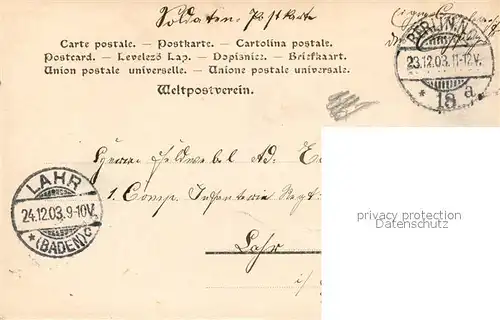 Soldaten. Postkarte
Carte postale. — Postkarte. — Cartolina postale.
Postcard. — Levelező Lap. — Dopisnice. — Briefkaart.
Union postale universelle. — Unione postale universale.
Weltpostverein.
BERLIN, N.
23.12.03. 11-12V.
* 18 a
Herrn Feldwebel Ad.
1. Comp. Infanterie Regt:
LAHR
24.12.03. 9-10V.
* (BADEN) c
Lahr
i/
privacy protection
Datenschutz